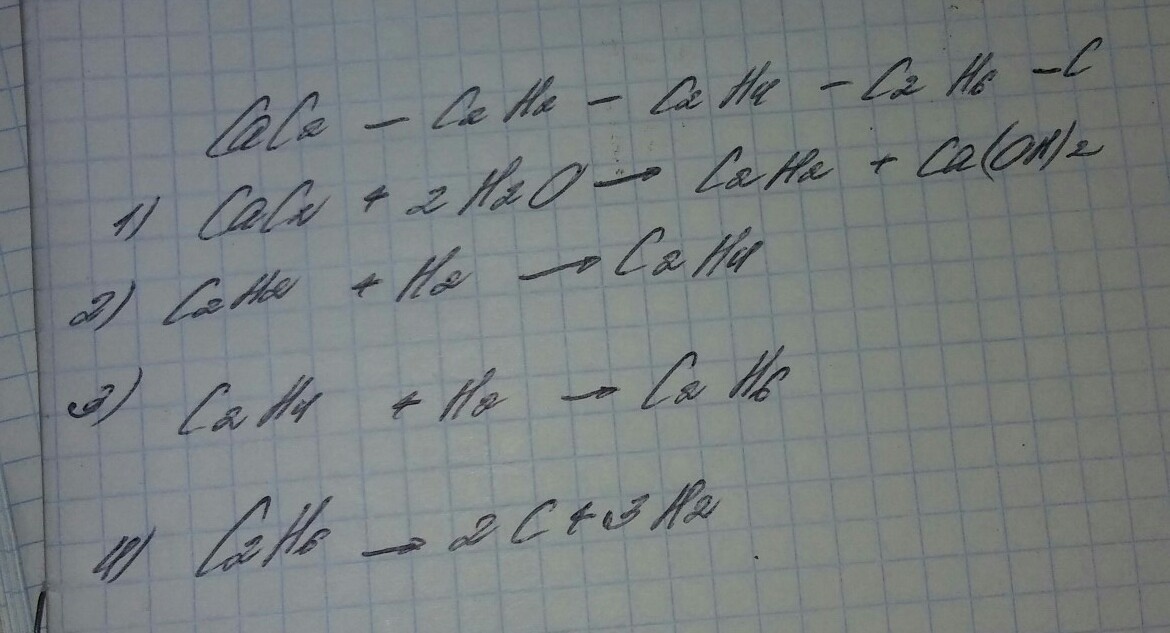 CaC2 – C2H2 – C2H4 – C2H6 – C
1) CaC2 + 2H2O → C2H2 + Ca(OH)2
2) C2H2 + H2 → C2H4
3) C2H4 + H2 → C2H6
4) C2H6 → 2C + 3H2